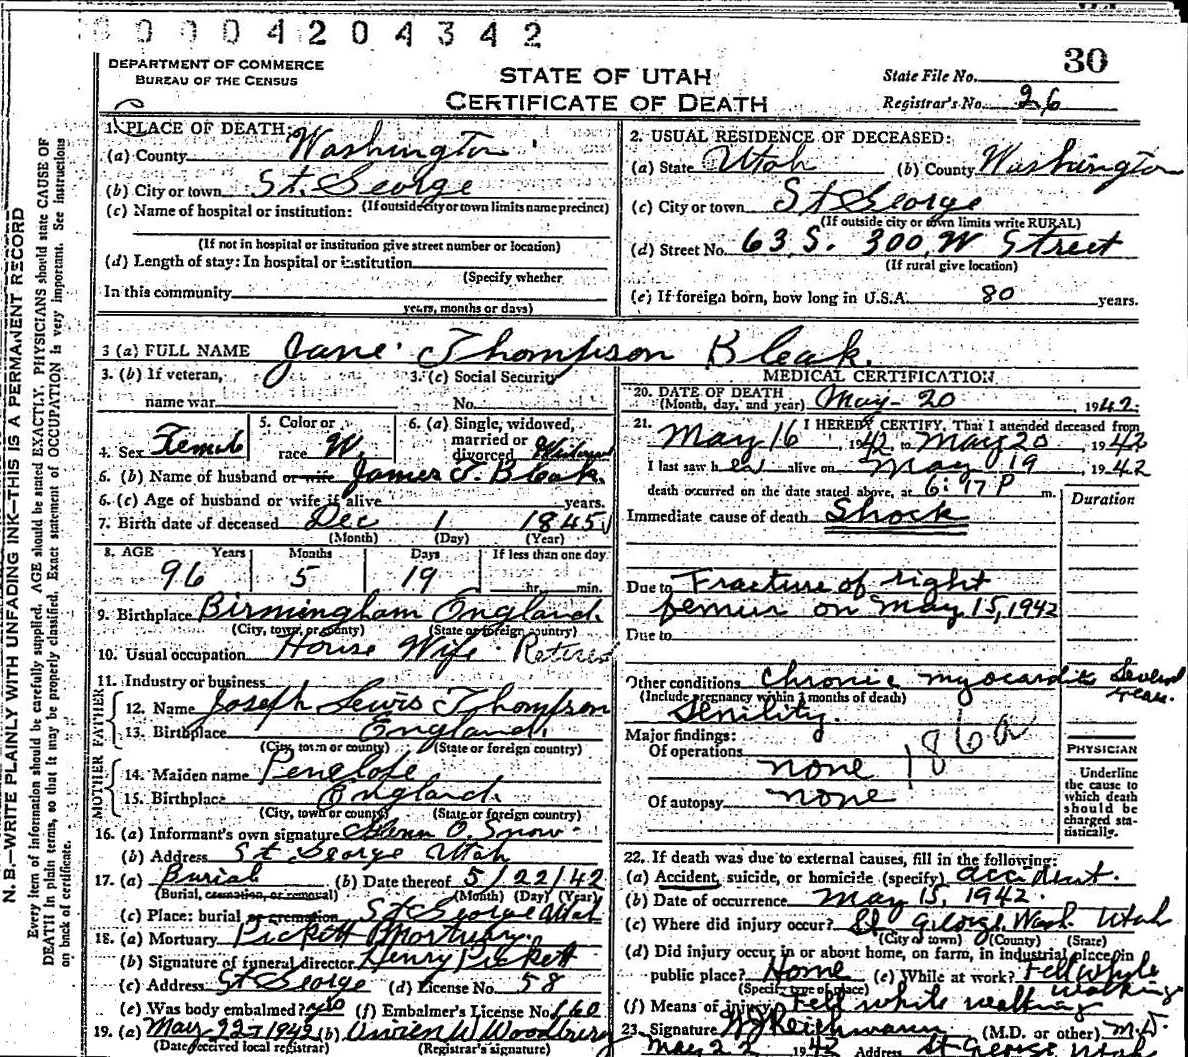 0 0 0 4 2 0 4 3 4 2
DEPARTMENT OF COMMERCE
BUREAU OF THE CENSUS
STATE OF UTAH
CERTIFICATE OF DEATH
30
State File No.
Registrar's No. 26
N. B.—WRITE PLAINLY WITH UNFADING INK—THIS IS A PERMANENT RECORD
Every item of information should be carefully supplied. AGE should be stated EXACTLY. PHYSICIANS should state CAUSE OF
DEATH in plain terms, so that it may be properly classified. Exact statement of OCCUPATION is very important. See instructions
on back of certificate.
1. PLACE OF DEATH:
(a) County Washington
(b) City or town St. George
(If outside city or town limits name precinct)
(c) Name of hospital or institution:
(If not in hospital or institution give street number or location)
(d) Length of stay: In hospital or institution
(Specify whether
In this community
years, months or days)
2. USUAL RESIDENCE OF DECEASED:
(a) State Utah (b) County Washington
(c) City or town St George
(If outside city or town limits write RURAL)
(d) Street No. 63 S. 300 W Street
(If rural give location)
(e) If foreign born, how long in U.S.A. 80 years.
3 (a) FULL NAME Jane Thompson Bleak.
3. (b) If veteran,
name war
3. (c) Social Security
No.
4. Sex Female
5. Color or
race W.
6. (a) Single, widowed,
married or
divorced Widowed
6. (b) Name of husband or wife James T. Bleak.
6. (c) Age of husband or wife if alive years.
7. Birth date of deceased Dec 1 1845
(Month) (Day) (Year)
8. AGE Years Months Days If less than one day
96 5 19 hr. min.
9. Birthplace Birmingham England.
(City, town, or county) (State or foreign country)
10. Usual occupation House Wife Retired
11. Industry or business
FATHER
12. Name Joseph Lewis Thompson
13. Birthplace England.
(City, town or county) (State or foreign country)
MOTHER
14. Maiden name Penelope
15. Birthplace England.
(City, town or county) (State or foreign country)
16. (a) Informant's own signature Glenn O. Snow
(b) Address St George Utah
17. (a) Burial (b) Date thereof 5/22/42
(Burial, cremation, or removal) (Month) (Day) (Year)
(c) Place: burial or cremation St George Utah
18. (a) Mortuary Pickett Mortuary.
(b) Signature of funeral director Henry Pickett
(c) Address St George (d) License No. 58
(e) Was body embalmed? yes (f) Embalmer's License No. 160
19. (a) May 22-1942 (b) Woodbury
(Date received local registrar) (Registrar's signature)
MEDICAL CERTIFICATION
20. DATE OF DEATH
(Month, day, and year) May-20, 1942.
21. I HEREBY CERTIFY, That I attended deceased from
May 16 1942 to May 20, 1942
I last saw her alive on May 19, 1942
death occurred on the date stated above, at 6:17 P m.
Duration
Immediate cause of death Shock
Due to Fracture of right
femur on May 15, 1942
Due to
Other conditions Chronic myocarditis Several years.
(Include pregnancy within 3 months of death)
Senility.
Major findings:
Of operations none
186a
Of autopsy none
PHYSICIAN
Underline
the cause to
which death
should be
charged sta-
tistically.
22. If death was due to external causes, fill in the following:
(a) Accident, suicide, or homicide (specify) accident.
(b) Date of occurrence May 15, 1942.
(c) Where did injury occur? St George Wash. Utah
(City or town) (County) (State)
(d) Did injury occur in or about home, on farm, in industrial place, in
public place? Home (e) While at work? Fell while walking
(Specify type of place)
(f) Means of injury Fell while walking
23. Signature (M.D. or other) M.D.
May 22 1942 Address St George Utah